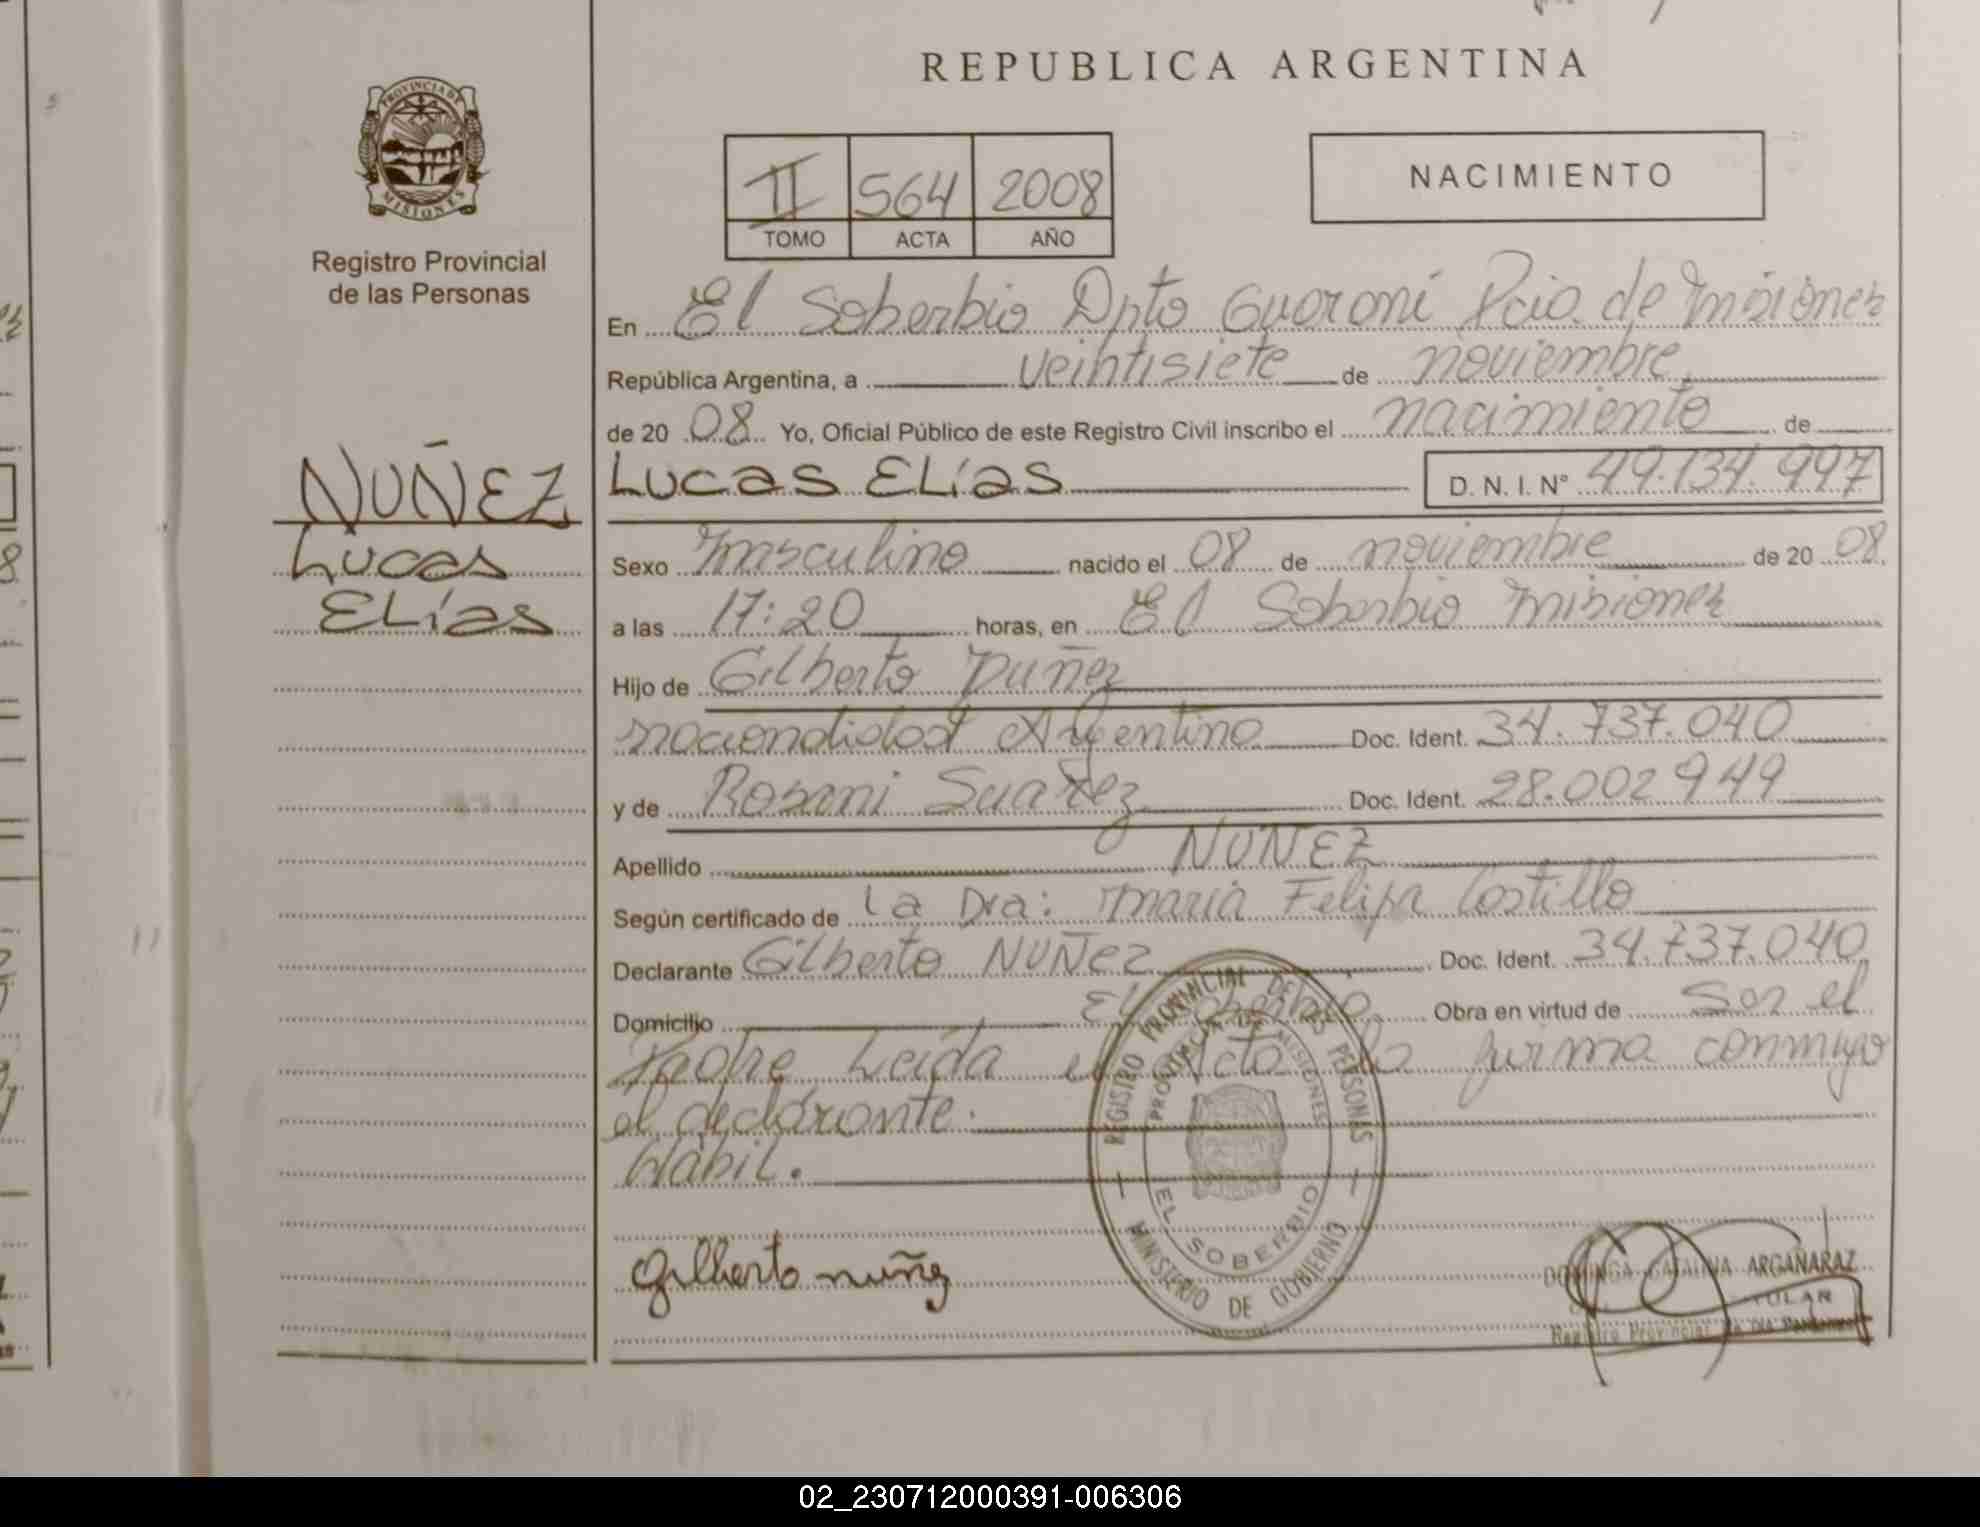 REPUBLICA ARGENTINA
PROVINCIA DE
MISIONES
Registro Provincial
de las Personas
II 564 2008
TOMO ACTA AÑO
NACIMIENTO
En El Soberbio Dpto Guaraní Pcia. de Misiones
República Argentina, a veintisiete de noviembre
de 20 08 Yo, Oficial Público de este Registro Civil inscribo el nacimiento de
NUÑEZ
Lucas
Elías
LUCAS ELíAS D. N. I. N° 49.134.997
Sexo masculino nacido el 08 de noviembre de 20 08
a las 17:20 horas, en El Soberbio Misiones
Hijo de Gilberto Nuñez
nacionalidad Argentino Doc. Ident. 34.737.040
y de Rosani Suarez Doc. Ident. 28.002949
Apellido NUÑEZ
Según certificado de La Dra: Maria Felipa Castillo
Declarante Gilberto NUÑez Doc. Ident. 34.737.040
Domicilio El Soberbio Obra en virtud de Ser el
Padre Leída el Acta la firma conmigo
el declarante.
Hábil.
REGISTRO PROVINCIAL DE LAS PERSONAS
PROVINCIA DE MISIONES
EL SOBERBIO
MINISTERIO DE GOBIERNO
gilberto nuñez
DOMINGA CATALINA ARGAÑARAZ
TULAR
Registro Provincial
02_230712000391-006306